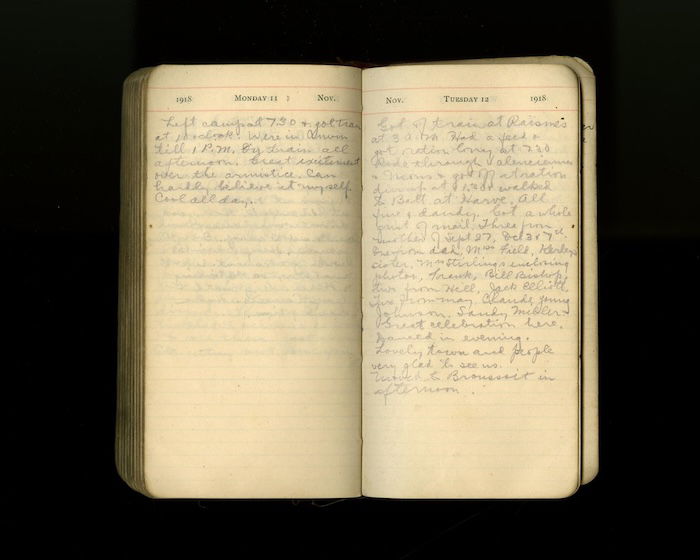 1918 Monday 11 Nov.
Left camp at 7.30 & got train
at 10 o'clock. Were in
till 1 P.M. By train all
afternoon. Great excitement
over the armistice. Can
hardly believe it myself.
Cool all day.
Nov. Tuesday 12 1918
Got off train at Raismes
at 3 a.m. Had a feed &
got ration lorry at 7.30
Rode through Valenciennes
& Mons & got off at ration
dump at 1.30 & walked
to Batt at Havre. All
fine & dandy. Got a whole
of mail. Three from
mother of Sept 27, Oct 3 & 7th.
One from dad, Mrs Field,
sister, Mrs Stirlings enclosing
photos, Frank, Bill Bishop,
two from Nell, Jack Elliott,
five from May, Claude, Jenny
Johnson, Sandy Miller.
Great celebration here.
Danced in evening.
Lovely town and people
very glad to see us.
Moved to in
afternoon.